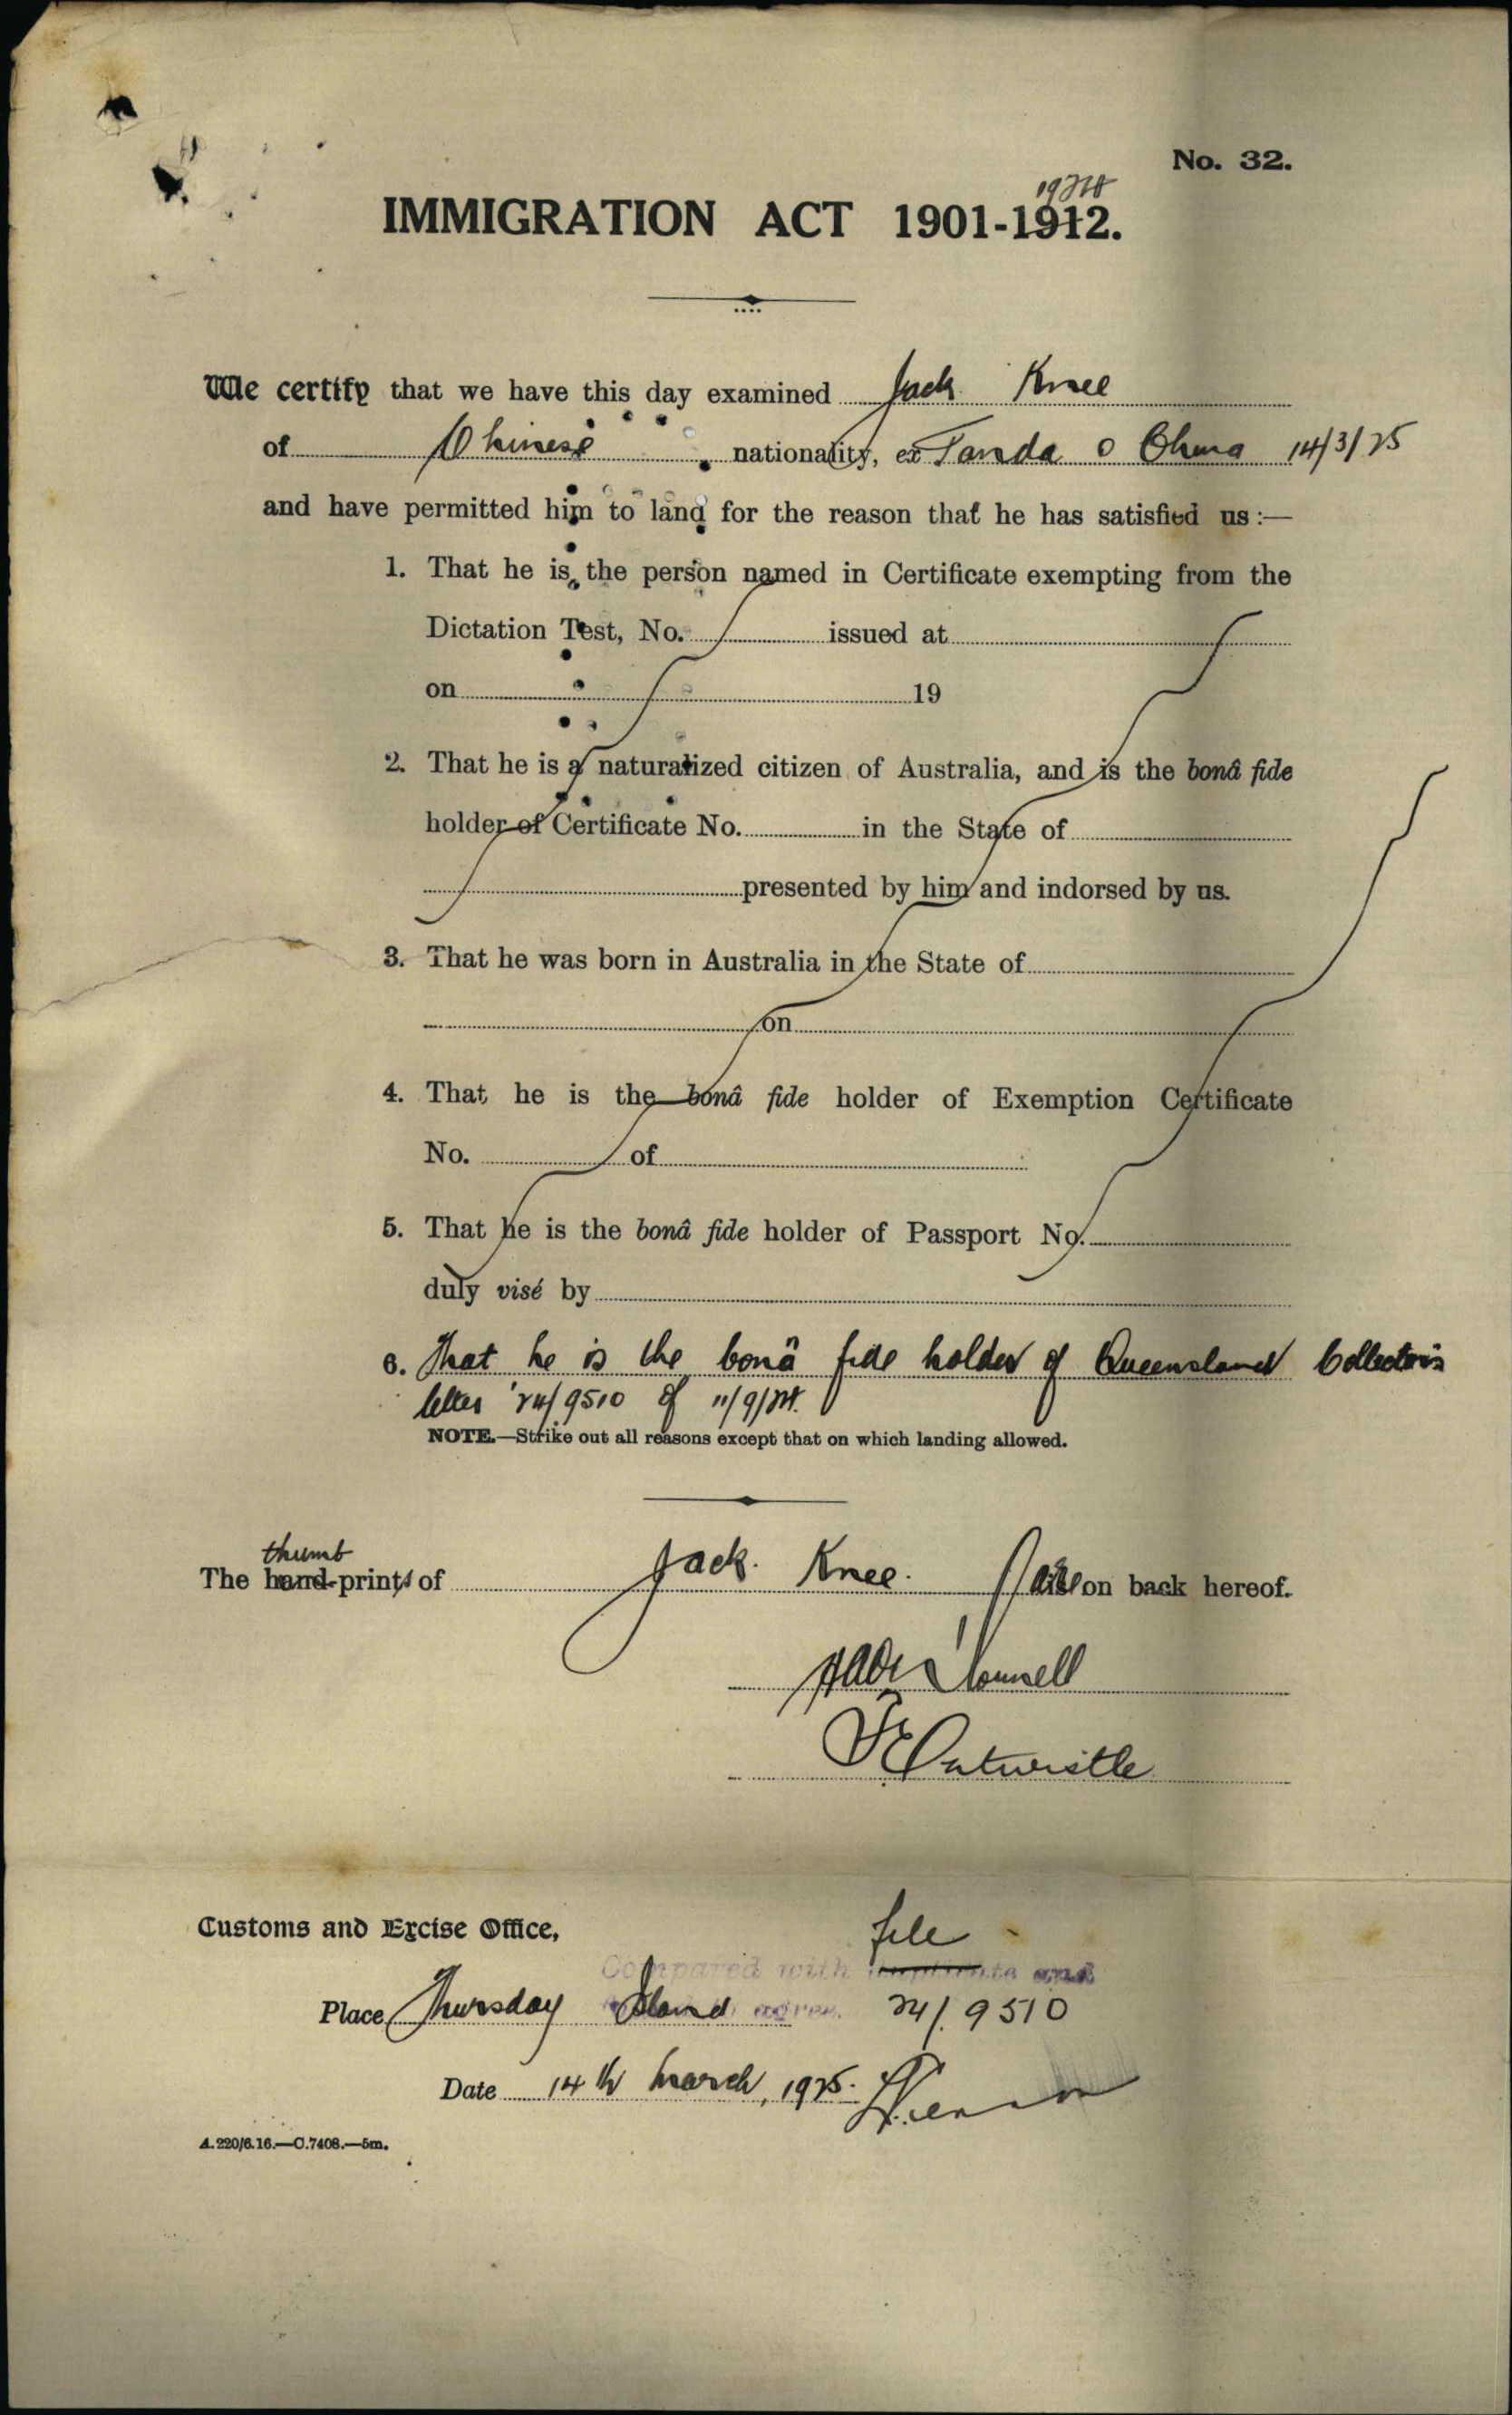 No. 32.
1924
IMMIGRATION ACT 1901-1912.
We certify that we have this day examined Jack Knee
of Chinese nationality, ex Tanda o China 14/3/25
and have permitted him to land for the reason that he has satisfied us :—
1. That he is the person named in Certificate exempting from the
Dictation Test, No. issued at
on 19
2. That he is a naturalized citizen of Australia, and is the bonâ fide
holder of Certificate No. in the State of
presented by him and indorsed by us.
3. That he was born in Australia in the State of
on
4. That he is the bonâ fide holder of Exemption Certificate
No. of
5. That he is the bonâ fide holder of Passport No.
duly visé by
6. That he is the bonâ fide holder of Queensland Collector's
letter 24/9510 of 11/9/24.
NOTE.—Strike out all reasons except that on which landing allowed.
thumb
The hand-prints of Jack Knee. on back hereof.
F E Entwistle
Customs and Excise Office,
file
Compared with duplicate and
Place Thursday Island agree. 24/9510
Date 14th March, 1925.
A.220/6.16.—C.7408.—5m.